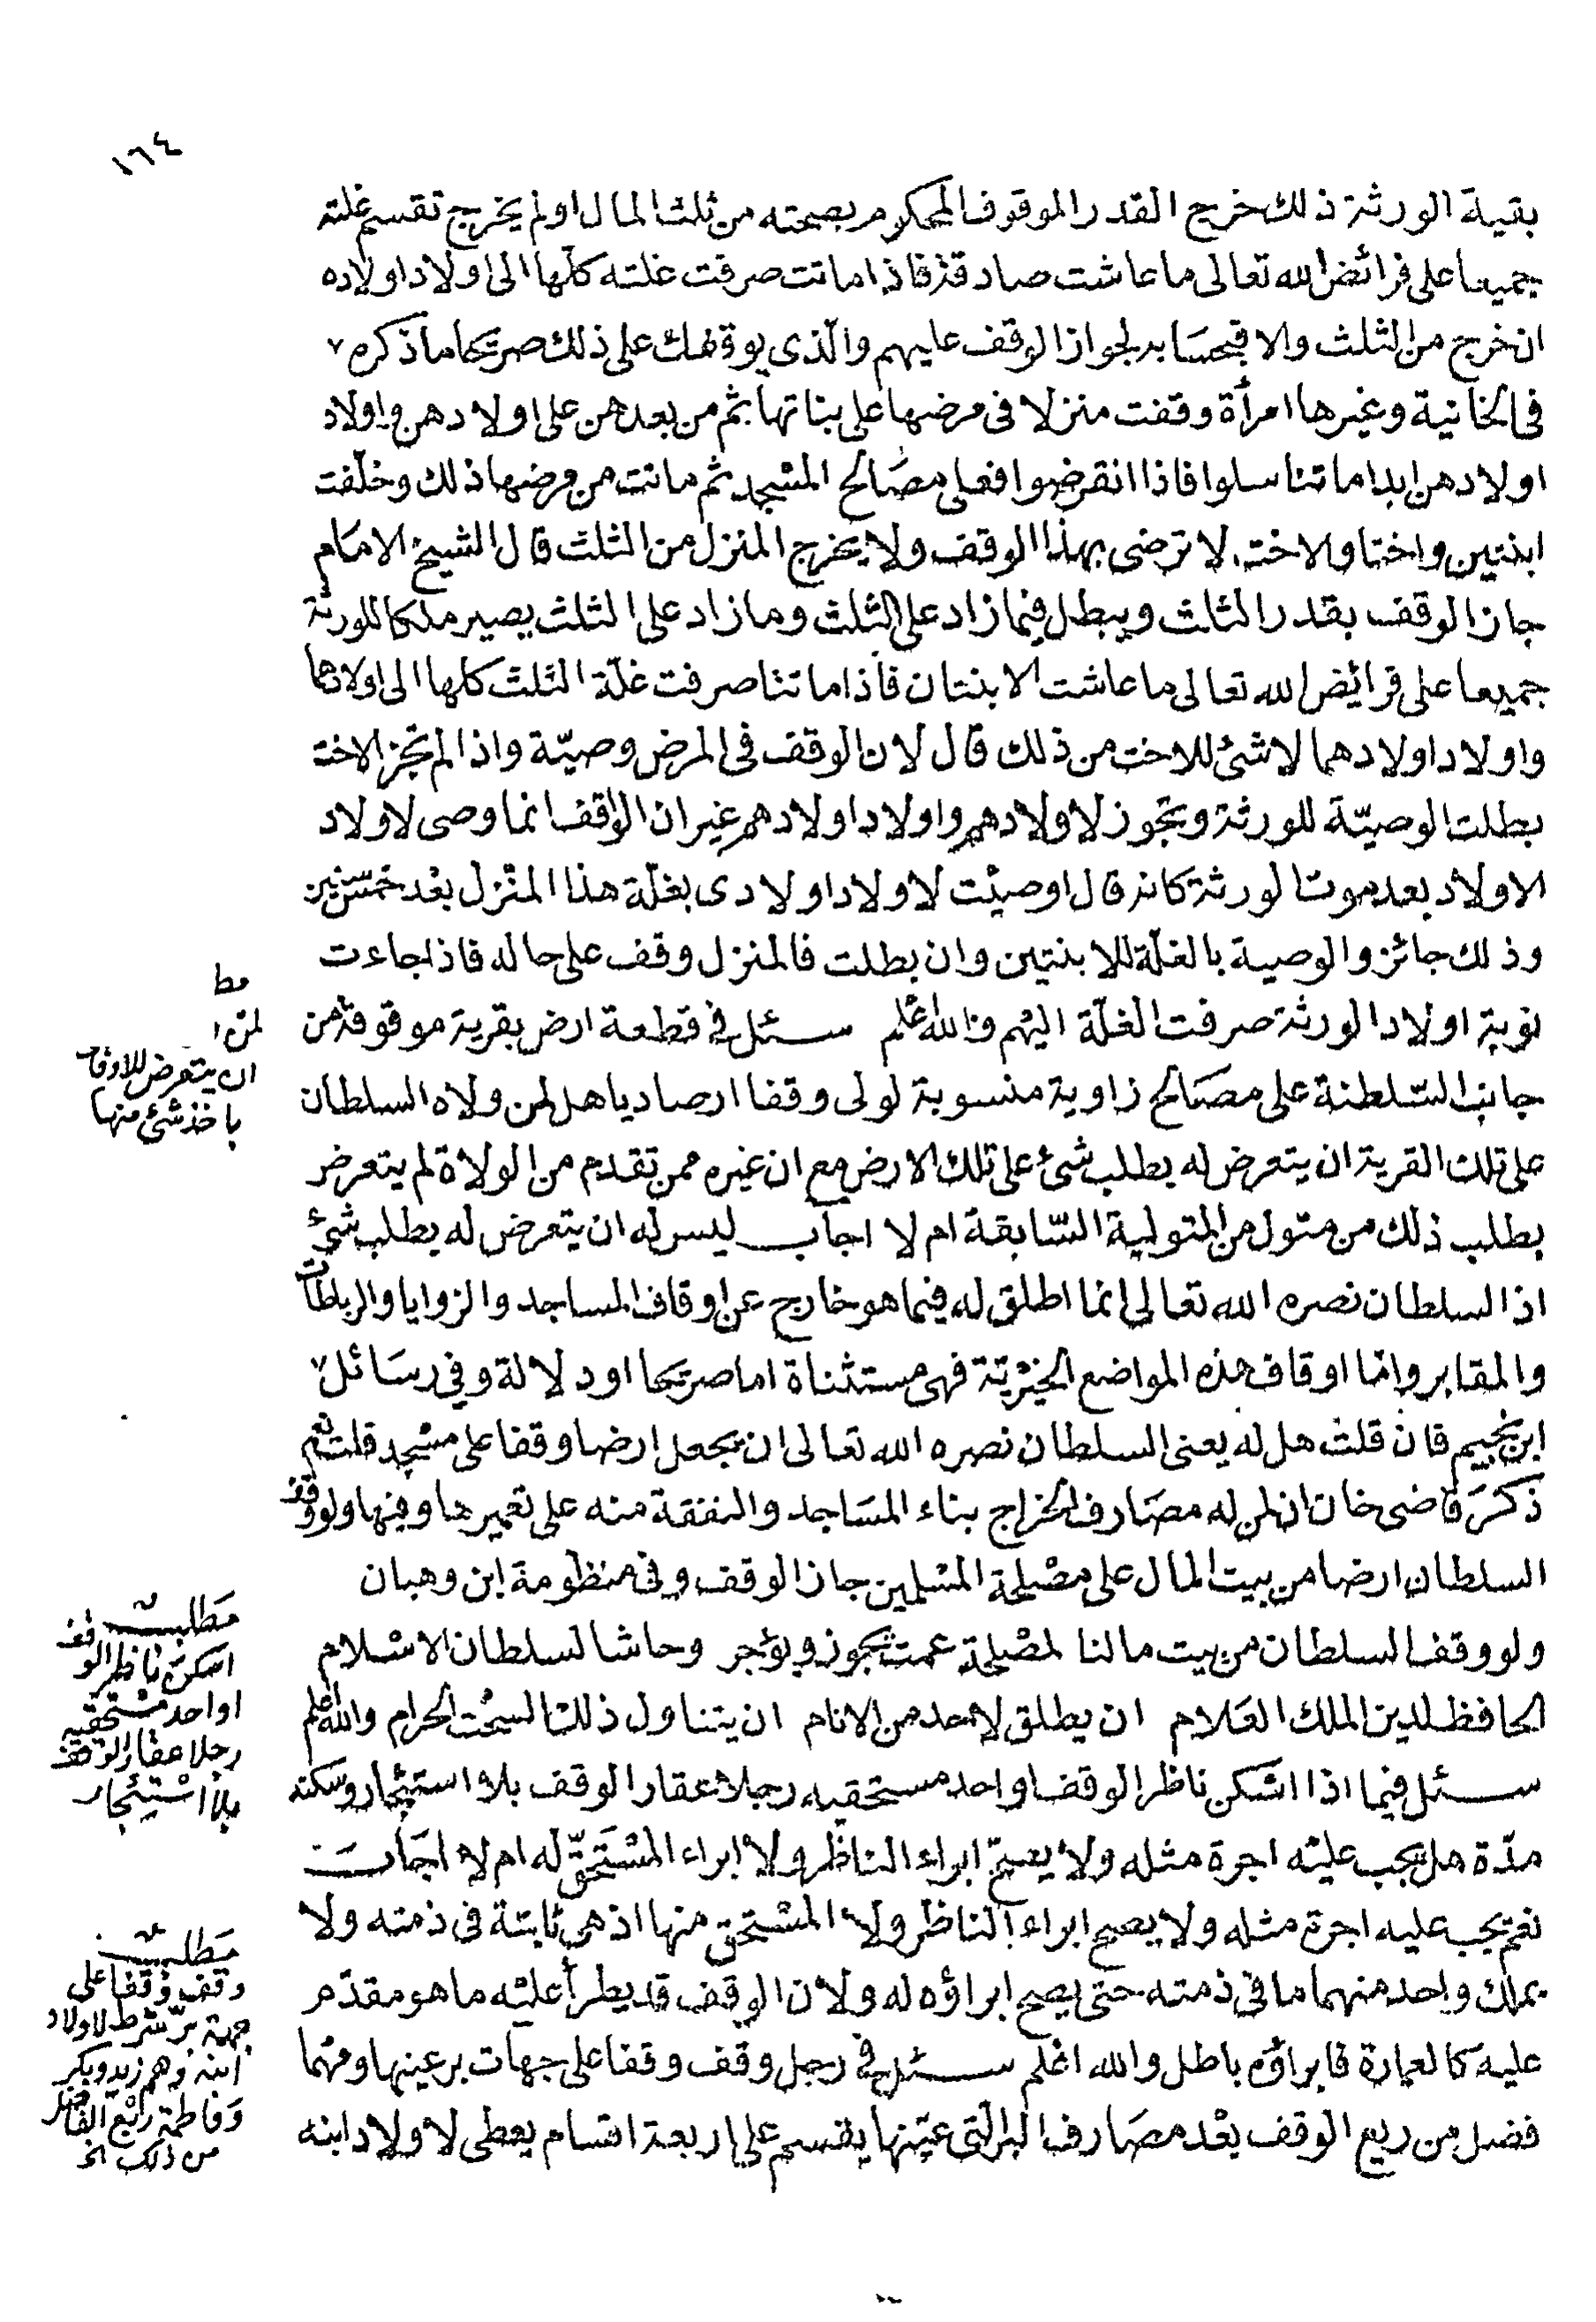 ١٦٤
بقية الورثة ذلك خرج القدر الموقوف المحكوم بصحته من ثلث المال او لم يخرج تقسم غلته
جميعا على فرائض الله تعالى ما عاشت صادقة فاذا ماتت صرفت غلته كلها الى اولاد اولاده
ان خرج من الثلث والا فبحسابه لجواز الوقف عليهم والذى يوقفك على ذلك صريحا ما ذكره
فى الخانية وغيرها امرأة وقفت منزلا فى مرضها على بناتها ثم من بعدهن على اولادهن واولاد
اولادهن ابدا ما تناسلوا فاذا انقرضوا فعلى مصالح المسجد ثم ماتت من مرضها ذلك وخلّفت
ابنتين واختا والاخت لا ترضى بهذا الوقف ولا يخرج المنزل من الثلث قال الشيخ الامام
جاز الوقف بقدر الثلث ويبطل فيما زاد على الثلث وما زاد على الثلث يصير ملكا للورثة
جميعا على فرائض الله تعالى ما عاشت الابنتان فاذا ماتتا صرفت غلّة الثلث كلها الى اولادهما
واولاد اولادهما لا شئ للاخت من ذلك قال لان الوقف فى المرض وصيّة واذا لم تجز الاخت
بطلت الوصيّة للورثة وتجوز لاولادهم واولاد اولادهم غير ان الواقف انما وصى لاولاد
الاولاد بعد موت الورثة كانه قال اوصيت لاولاد اولادى بغلّة هذا المنزل بعد خمس سنين
وذلك جائز والوصية بالغلّة للابنتين وان بطلت فالمنزل وقف على حاله فاذا جاءت
نوبة اولاد الورثة صرفت الغلّة اليهم والله اعلم سئل فى قطعة ارض بقرية موقوفة من
جانب السّلطنة على مصالح زاوية منسوبة لولى وقفا ارصاديا هل لمن ولاه السلطان
على تلك القرية ان يتعرض له بطلب شئ على تلك الارض مع ان غيره ممن تقدم من الولاة لم يتعرض
بطلب ذلك من متول من المتولية السّابقة ام لا اجاب ليس له ان يتعرض له بطلب شئ
اذ السلطان نصره الله تعالى انما اطلق له فيما هو خارج عن اوقاف المساجد والزوايا والرباطات
والمقابر واما اوقاف هذه المواضع الخيريّة فهى مستثناة اما صريحا او دلالة وفى رسائل
ابن نجيم فان قلت هل له يعنى السلطان نصره الله تعالى ان يجعل ارضا وقفا على مسجد قلت نعم
ذكر قاضى خان ان لمن له مصارف الخراج بناء المساجد والنفقة منه على تعميرها وفيها ولو وقف
السلطان ارضا من بيت المال على مصلحة المسلمين جاز الوقف وفى منظومة ابن وهبان
ولو وقف السلطان من بيت مالنا لمصلحة عمت يجوز ويؤجر وحاشا لسلطان الاسلام
الحافظ لدين الملك العلام ان يطلق لاحد من الانام ان يتناول ذلك السحت الحرام والله اعلم
سئل فيما اذا اسكن ناظر الوقف او احد مستحقيه رجلا عقار الوقف بلا استئجار وسكنه
مدّة هل يجب عليه اجرة مثله ولا يصح ابراء الناظر ولا ابراء المستحقّ له ام لا اجاب
نعم يجب عليه اجرة مثله ولا يصح ابراء الناظر ولا المستحق منها اذ هى ثابتة فى ذمته ولا
يملك واحد منهما ما فى ذمته حتى يصح ابراؤه له ولان الوقف قد يطرأ عليه ما هو مقدّم
عليه كالعمارة فابراؤه باطل والله اعلم سئل فى رجل وقف وقفا على جهات بر عينها ومهما
فضل من ريع الوقف بعد مصارف البر التى عيّنها يقسم على اربعة اقسام يعطى لاولاد ابنه
مط
ان يتعرض للاوقاف
باخذ شئ منها
مطلب
اسكن ناظر الوقف
او احد مستحقيه
رجلا عقار الوقف
بلا استئجار
مطلب
وقف وقفا على
جهة برّ شرط لاولاد
ابنه وهم زيد وبكر
وفاطمة رابع الفاضل
من ذلك الخ